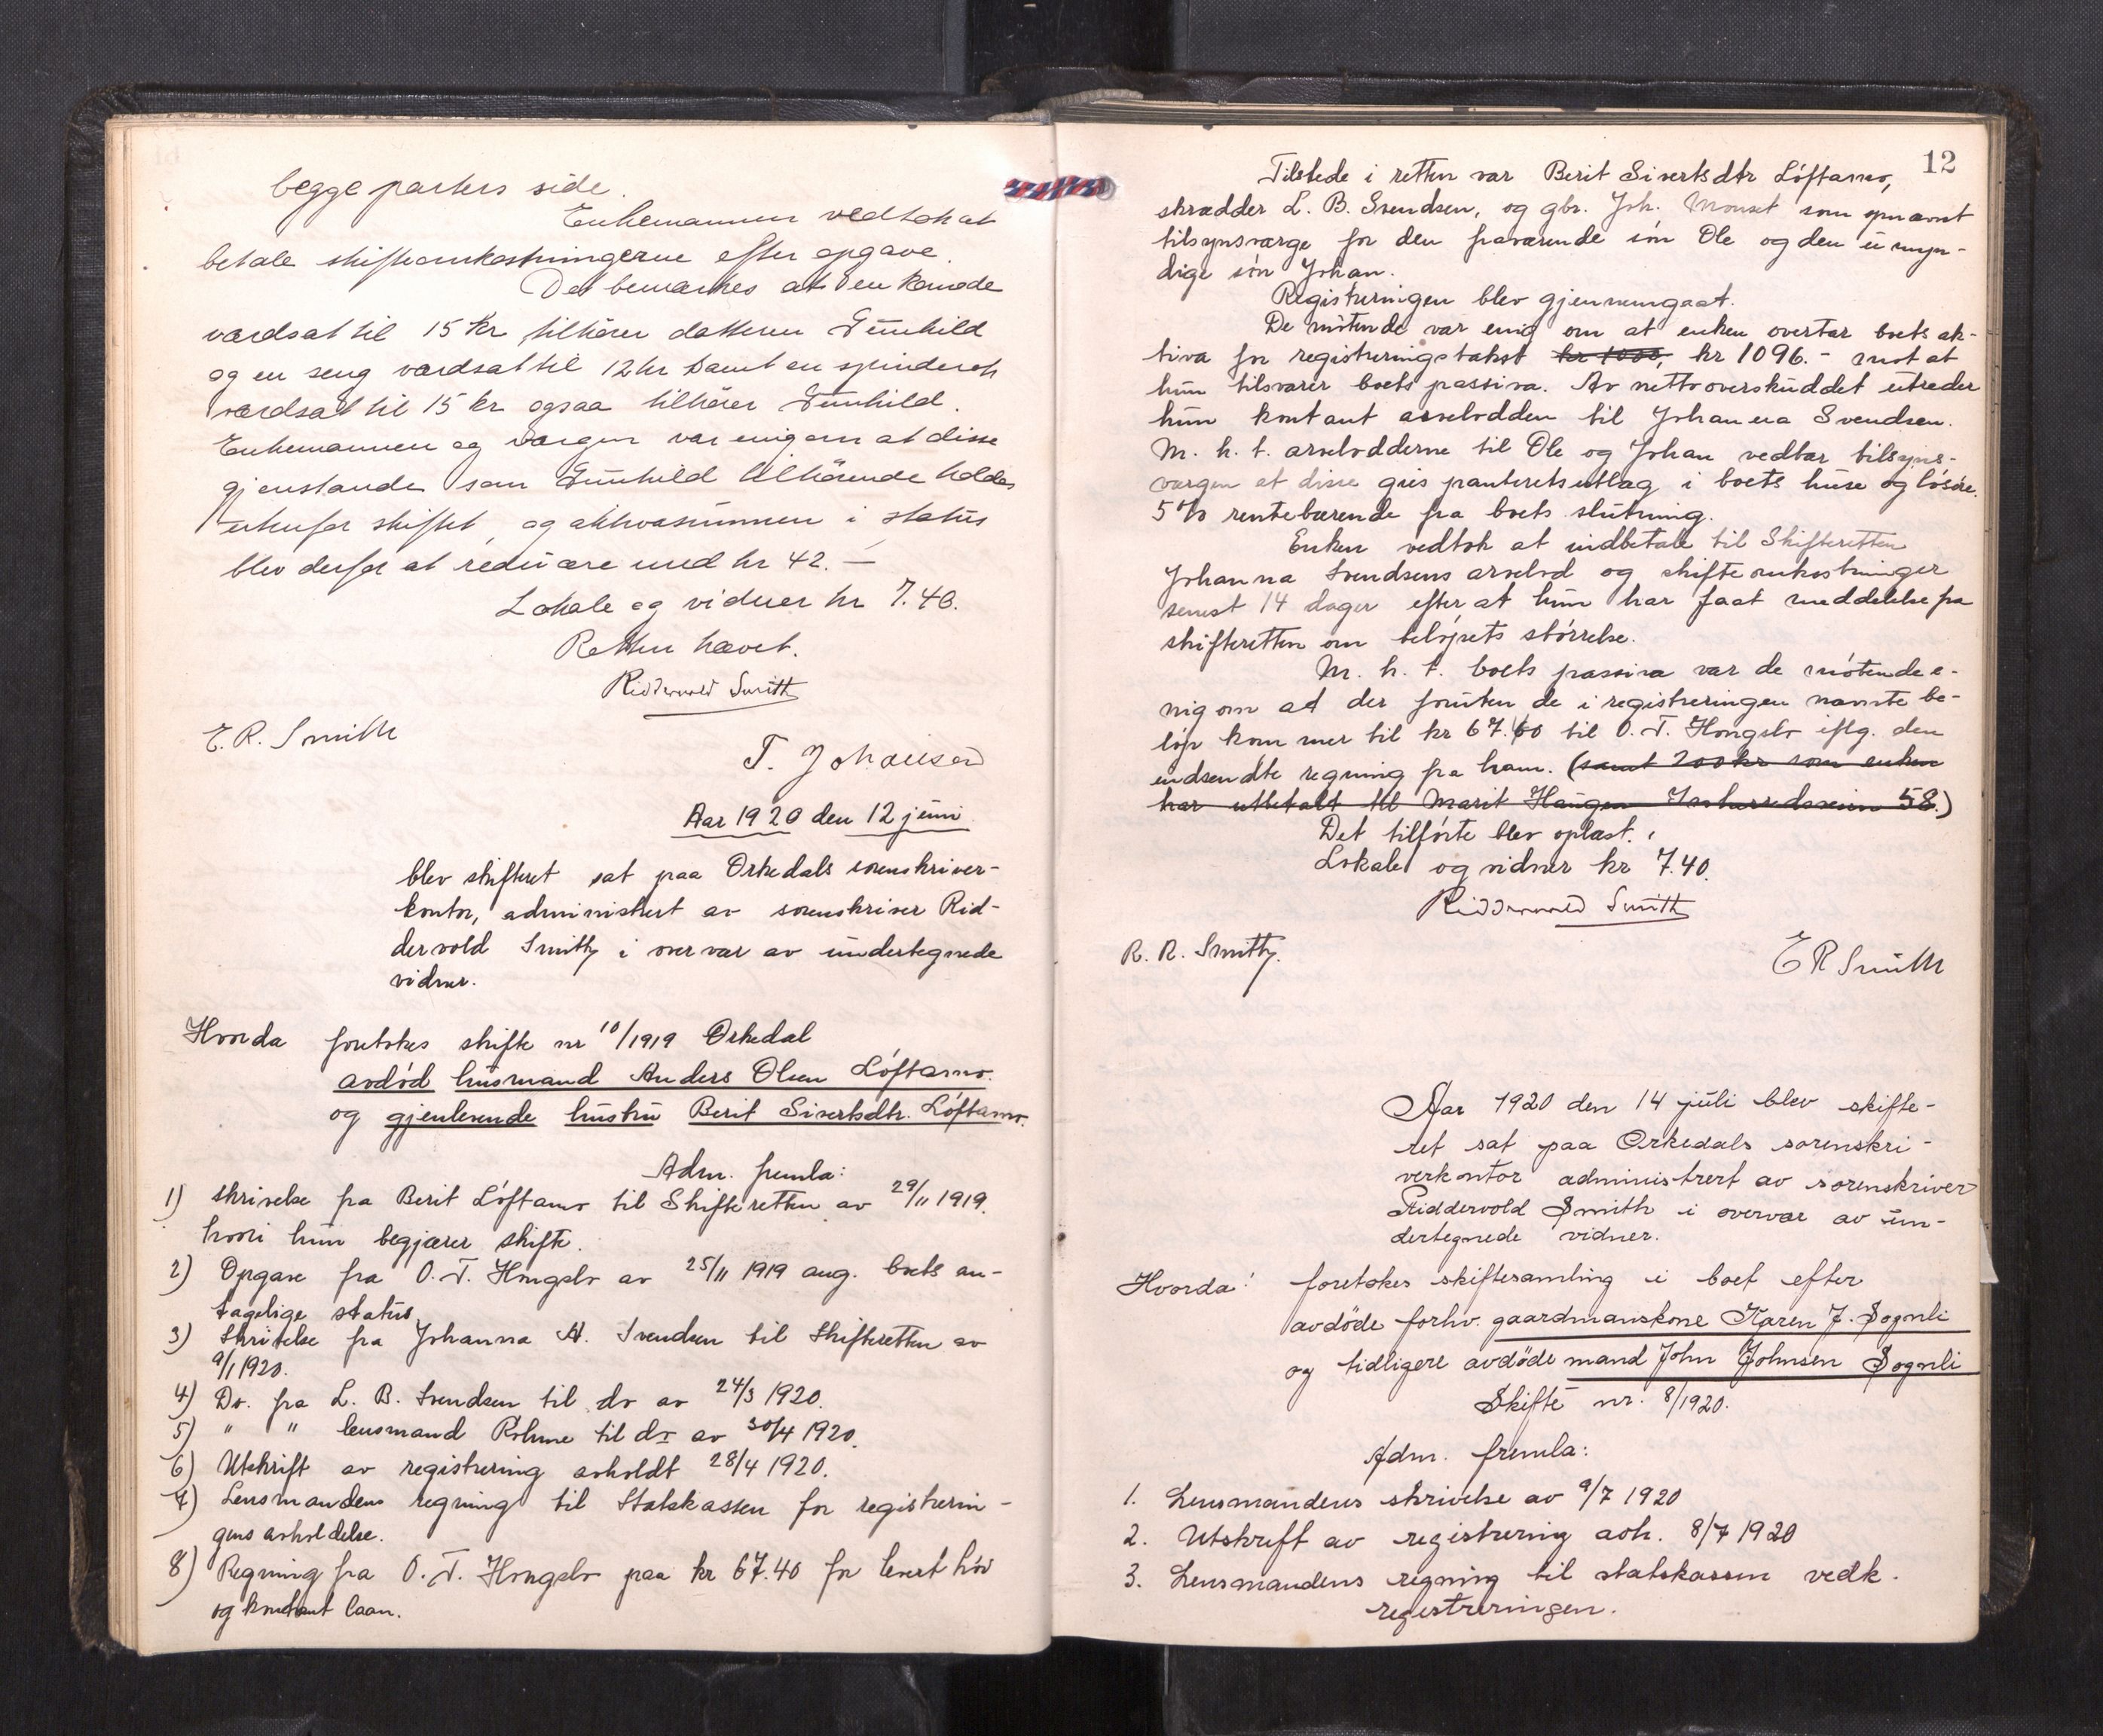 begge parters side.
Enkemannen vedtok at
betale skifteomkostningerne efter opgave.
Det bemærkes at en komode
værdsat til 15 kr tilhører datteren Gunhild
og en seng værdsat til 12 kr samt en spinderok
værdsat til 15 kr ogsaa tilhører Gunhild.
Enkemannen og værgen var enig om at disse
gjenstande som Gunhild tilhørende holdes
utenfor skiftet, og aktivasummen i status
blev derfor at reducere med kr 42. —
Lokale og vidner kr 7.40.
Retten hævet.
Riddervold Smith
E. R. Smith
T. Johansen
Aar 1920 den 12 juni
blev skifteret sat paa Orkedals sorenskriver-
kontor, administrert av sorenskriver Rid-
dervold Smith i overvær av undertegnede
vidner.
Hvorda foretokes skifte nr 10/1919 Orkedal
avdød husmand Anders Olsen Løftamo.
og gjenlevende hustru Berit Sivertsdtr. Løftamo.
Adm. fremla:
1) Skrivelse fra Berit Løftamo til Skifteretten av 29/11 1919.
hvori hun begjærer skifte.
2) Opgave fra O. T. Hongslo av 25/11 1919 ang. boets an-
tagelige status.
3) Skrivelse fra Johanna A. Svendsen til Skifteretten av
9/1 1920.
4) Do. fra L. B. Svendsen til do av 24/3 1920.
5) " " lensmand Rohme til do av 30/4 1920.
6) Utskrift av registrering avholdt 28/4 1920.
7) Lensmandens regning til Statskassen for registrerin-
gens avholdelse.
8) Regning fra O. T. Hongslo paa kr 67.40 for levert høi
og kontant laan.
12
Tilstede i retten var Berit Sivertsdtr Løftamo,
skrædder L. B. Svendsen, og gbr. Joh. Monset som opnævnt
tilsynsværge for den fraværende søn Ole og den umyn-
dige søn Johan.
Registreringen blev gjennemgaat.
De møtende var enig om at enken overtar boets ak-
tiva for registreringstakst kr 1000, kr 1096.- mot at
hun tilsvarer boets passiva. Av nettooverskuddet utreder
hun kontant arvelodden til Johanna Svendsen.
M. h. t. arvelodderne til Ole og Johan vedtar tilsyns-
værgen at disse gis panteretsutlæg i boets huse og løsøre.
5% rentebærende fra boets slutning.
Enken vedtok at indbetale til Skifteretten
Johanna Svendsens arvelod og skifteomkostninger
senest 14 dager efter at hun har faat meddelelse fra
skifteretten om beløpets størrelse.
M. h. t. boets passiva var de møtende e-
nig om at der foruten de i registreringen nævnte be-
løp kommer til kr 67.60 til O. T. Hongslo iflg. den
indsendte regning fra ham. (samt 200 kr som enken
har utbetalt til Marit Haugen Ivaherredsveien 58.)
Det tilførte blev oplæst.
Lokale og vidner kr 7.40.
Riddervold Smith
R. R. Smith.
E R Smith
Aar 1920 den 14 juli blev skifte-
ret sat paa Orkedals sorenskri-
verkontor administrert av sorenskriver
Riddervold Smith i overvær av un-
dertegnede vidner.
Hvorda: foretokes skiftesamling i boet efter
avdöde forhv. gaardmanskone Karen J. Sognli
og tidligere avdöde mand John Johnsen Sognli
Skifte nr. 8/1920.
Adm. fremla:
1. Lensmandens skrivelse av 9/7 1920
2. Utskrift av registrering avh. 8/7 1920
3. Lensmandens regning til statskassen vedk.
registreringen.